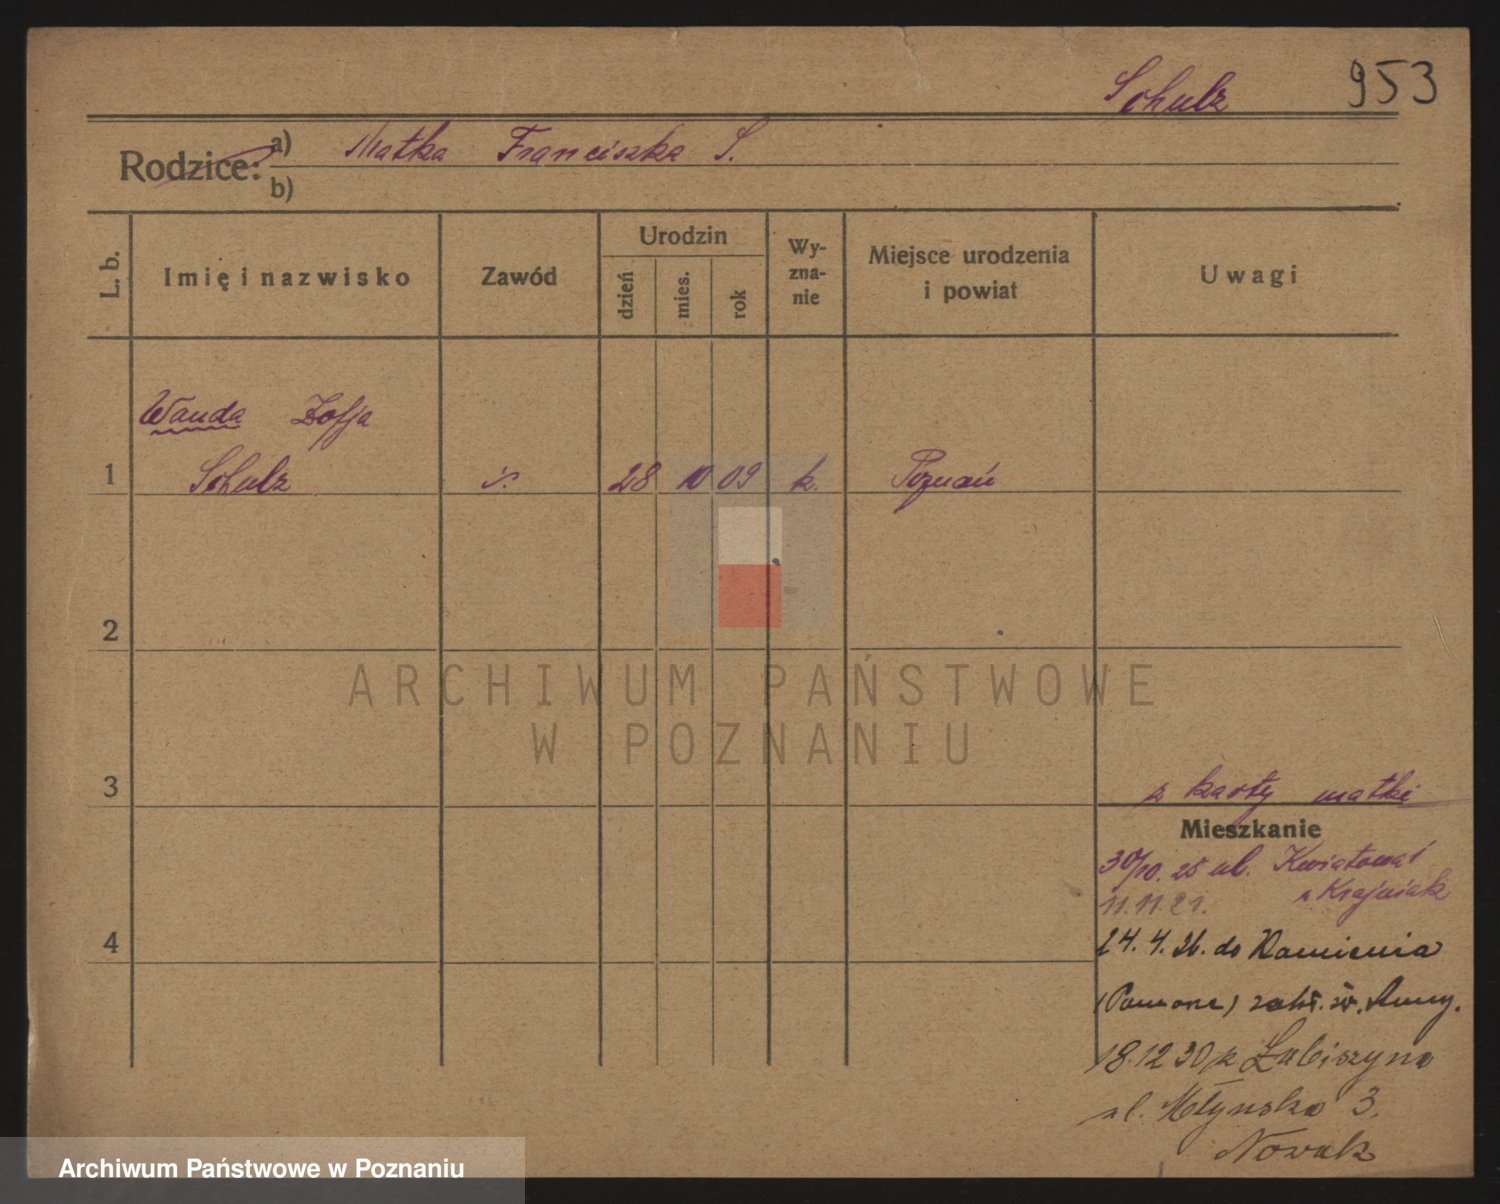 Schulz 953
Rodzice: a) Matka Franciszka S.
b)
L. b. Imię i nazwisko Zawód Urodzin Wy-zna-nie Miejsce urodzenia i powiat Uwagi
dzień mies. rok
Wanda Zofja
1 Schulz 28 10 09 k. Poznań
2
ARCHIWUM PAŃSTWOWE
W POZNANIU
3 z karty matki
Mieszkanie
30/10. 25 ul. Kwiatowa 1
11.11.21. z Krajniak
4 24. 4. 26. do Kamienia
(Pomorze) zakł. św. Anny.
18.12 30 z Łabiszyna
ul. Młyńska 3.
Nowak
Archiwum Państwowe w Poznaniu